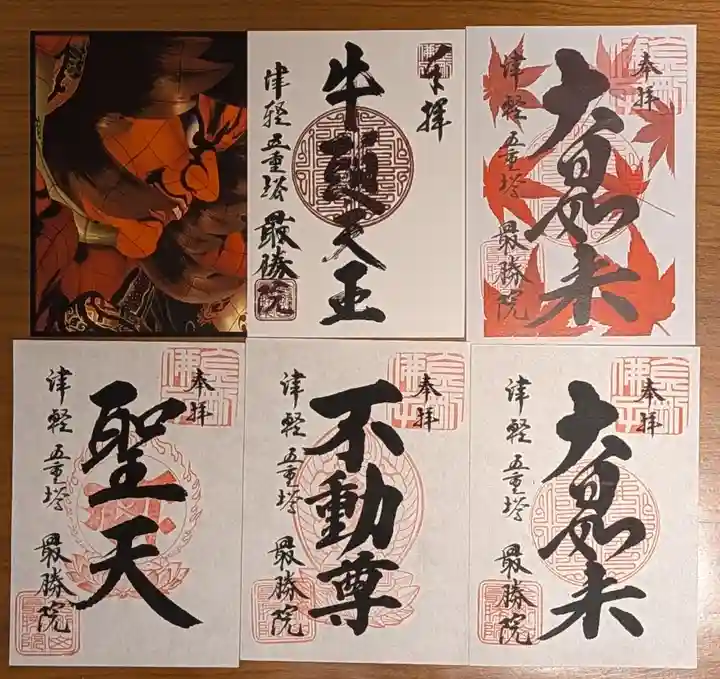 奉拝
牛頭天王
津軽五重塔
最勝院
奉拝
大日如来
津軽五重塔
最勝院
奉拝
聖天
津軽五重塔
最勝院
奉拝
不動尊
津軽五重塔
最勝院
奉拝
大日如来
津軽五重塔
最勝院